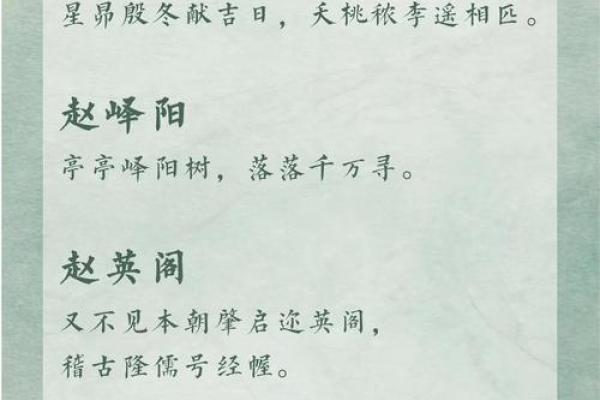 星昴殷冬献吉日，夭桃秾李遥相匹。
赵峄阳
亭亭峄阳树，落落千万寻。
赵英阁
又不见本朝肇启迩英阁，
稽古隆儒号经幄。